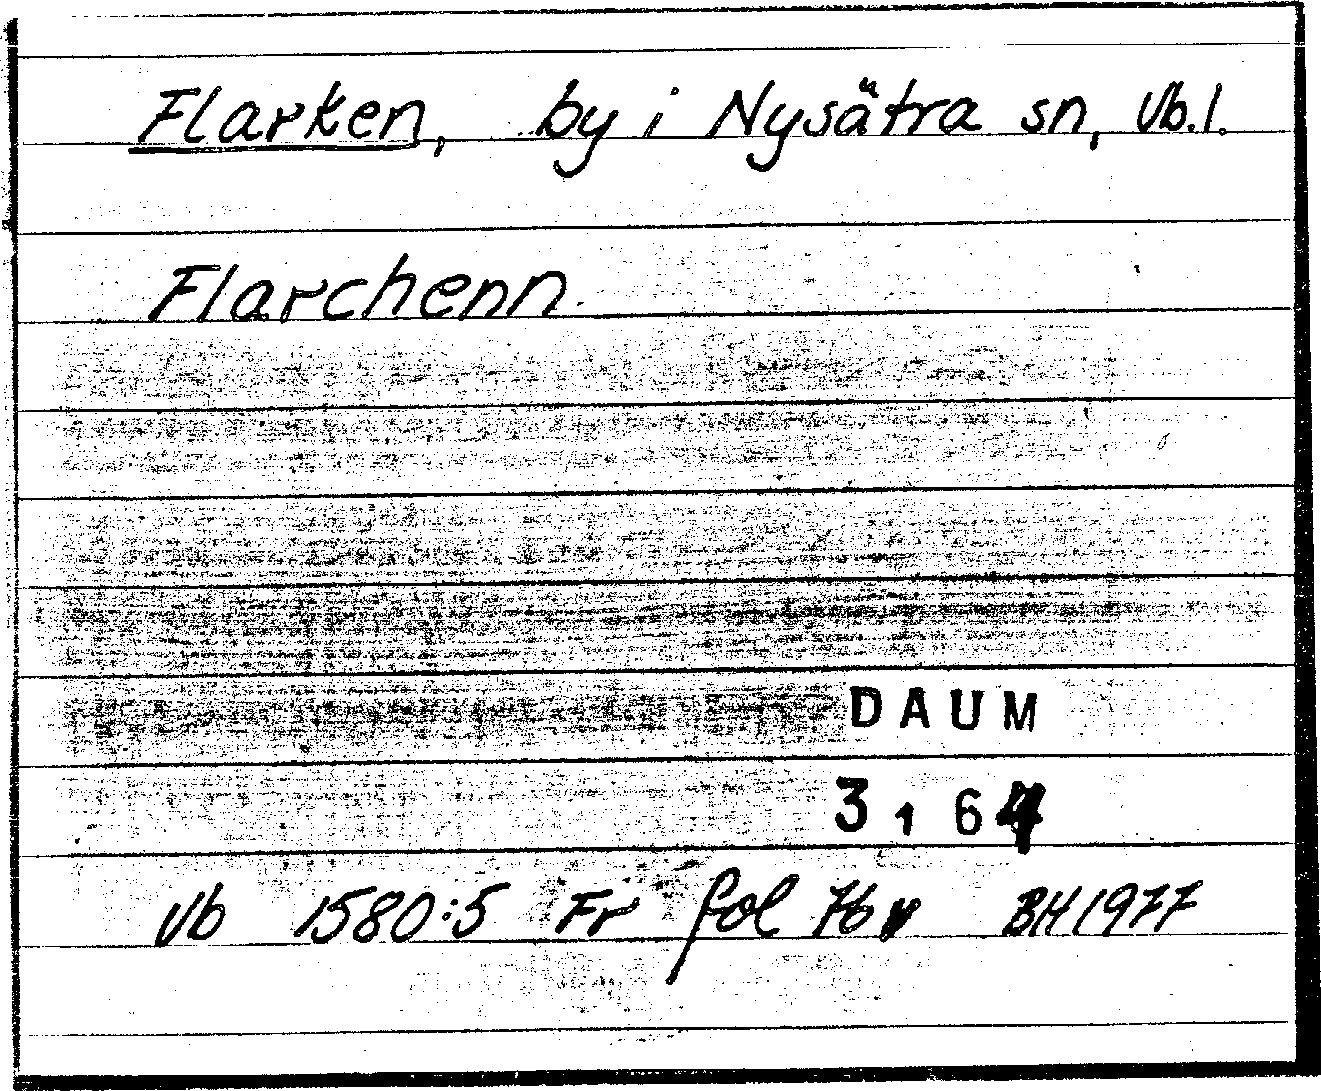 Flarken, by i Nysätra sn, Vb.l.
Flarchenn
DAUM
3164
Vb 1580:5 Fr fol 76v BH 1977